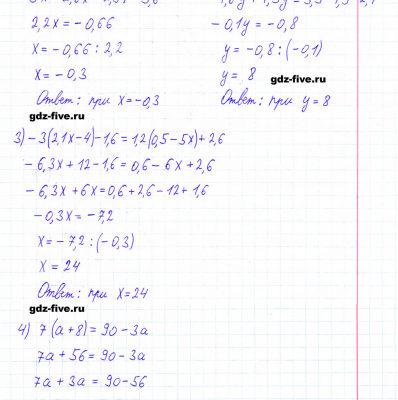 2,2x = -0,66
-0,1y = -0,8
x = -0,66 : 2,2
y = -0,8 : (-0,1)
x = -0,3
y = 8
gdz-five.ru
Ответ: при x = -0,3
Ответ: при y = 8
gdz-five.ru
3) -3(2,1x-4)-1,6 = 1,2(0,5-5x)+2,6
-6,3x+12-1,6 = 0,6-6x+2,6
-6,3x+6x = 0,6+2,6-12+1,6
-0,3x = -7,2
x = -7,2 : (-0,3)
x = 24
Ответ: при x = 24
gdz-five.ru
4) 7(a+8) = 90-3a
7a+56 = 90-3a
7a+3a = 90-56